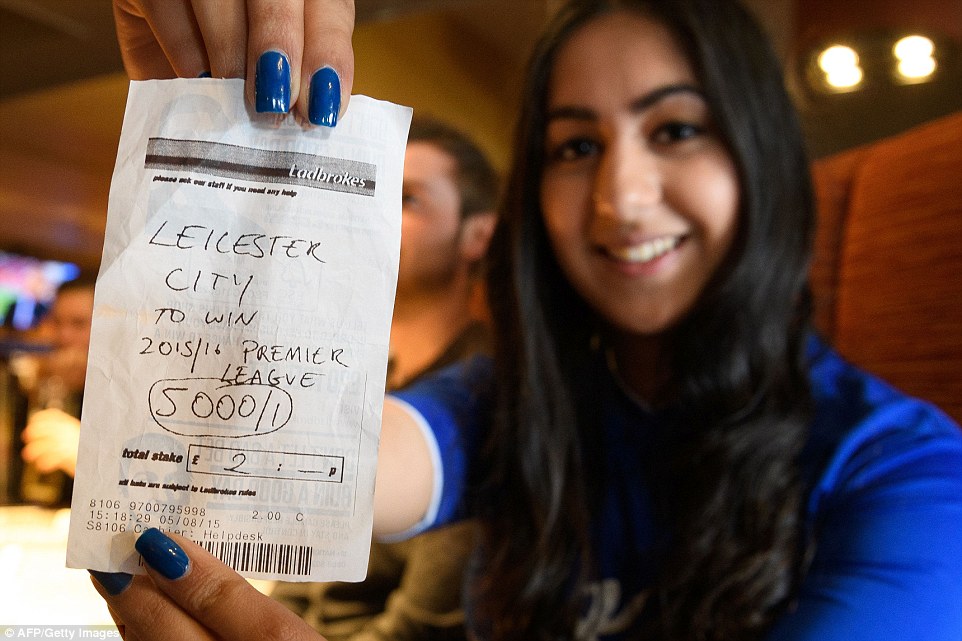 Ladbrokes
please ask our staff if you need any help
LEICESTER
CITY
TO WIN
2015/16 PREMIER
LEAGUE
5000/1
total stake £ 2 : — p
all bets are subject to Ladbrokes rules
8106 9700795998 2.00 C
15:18:29 05/08/15
S8106 Cashier: Helpdesk
© AFP/Getty Images